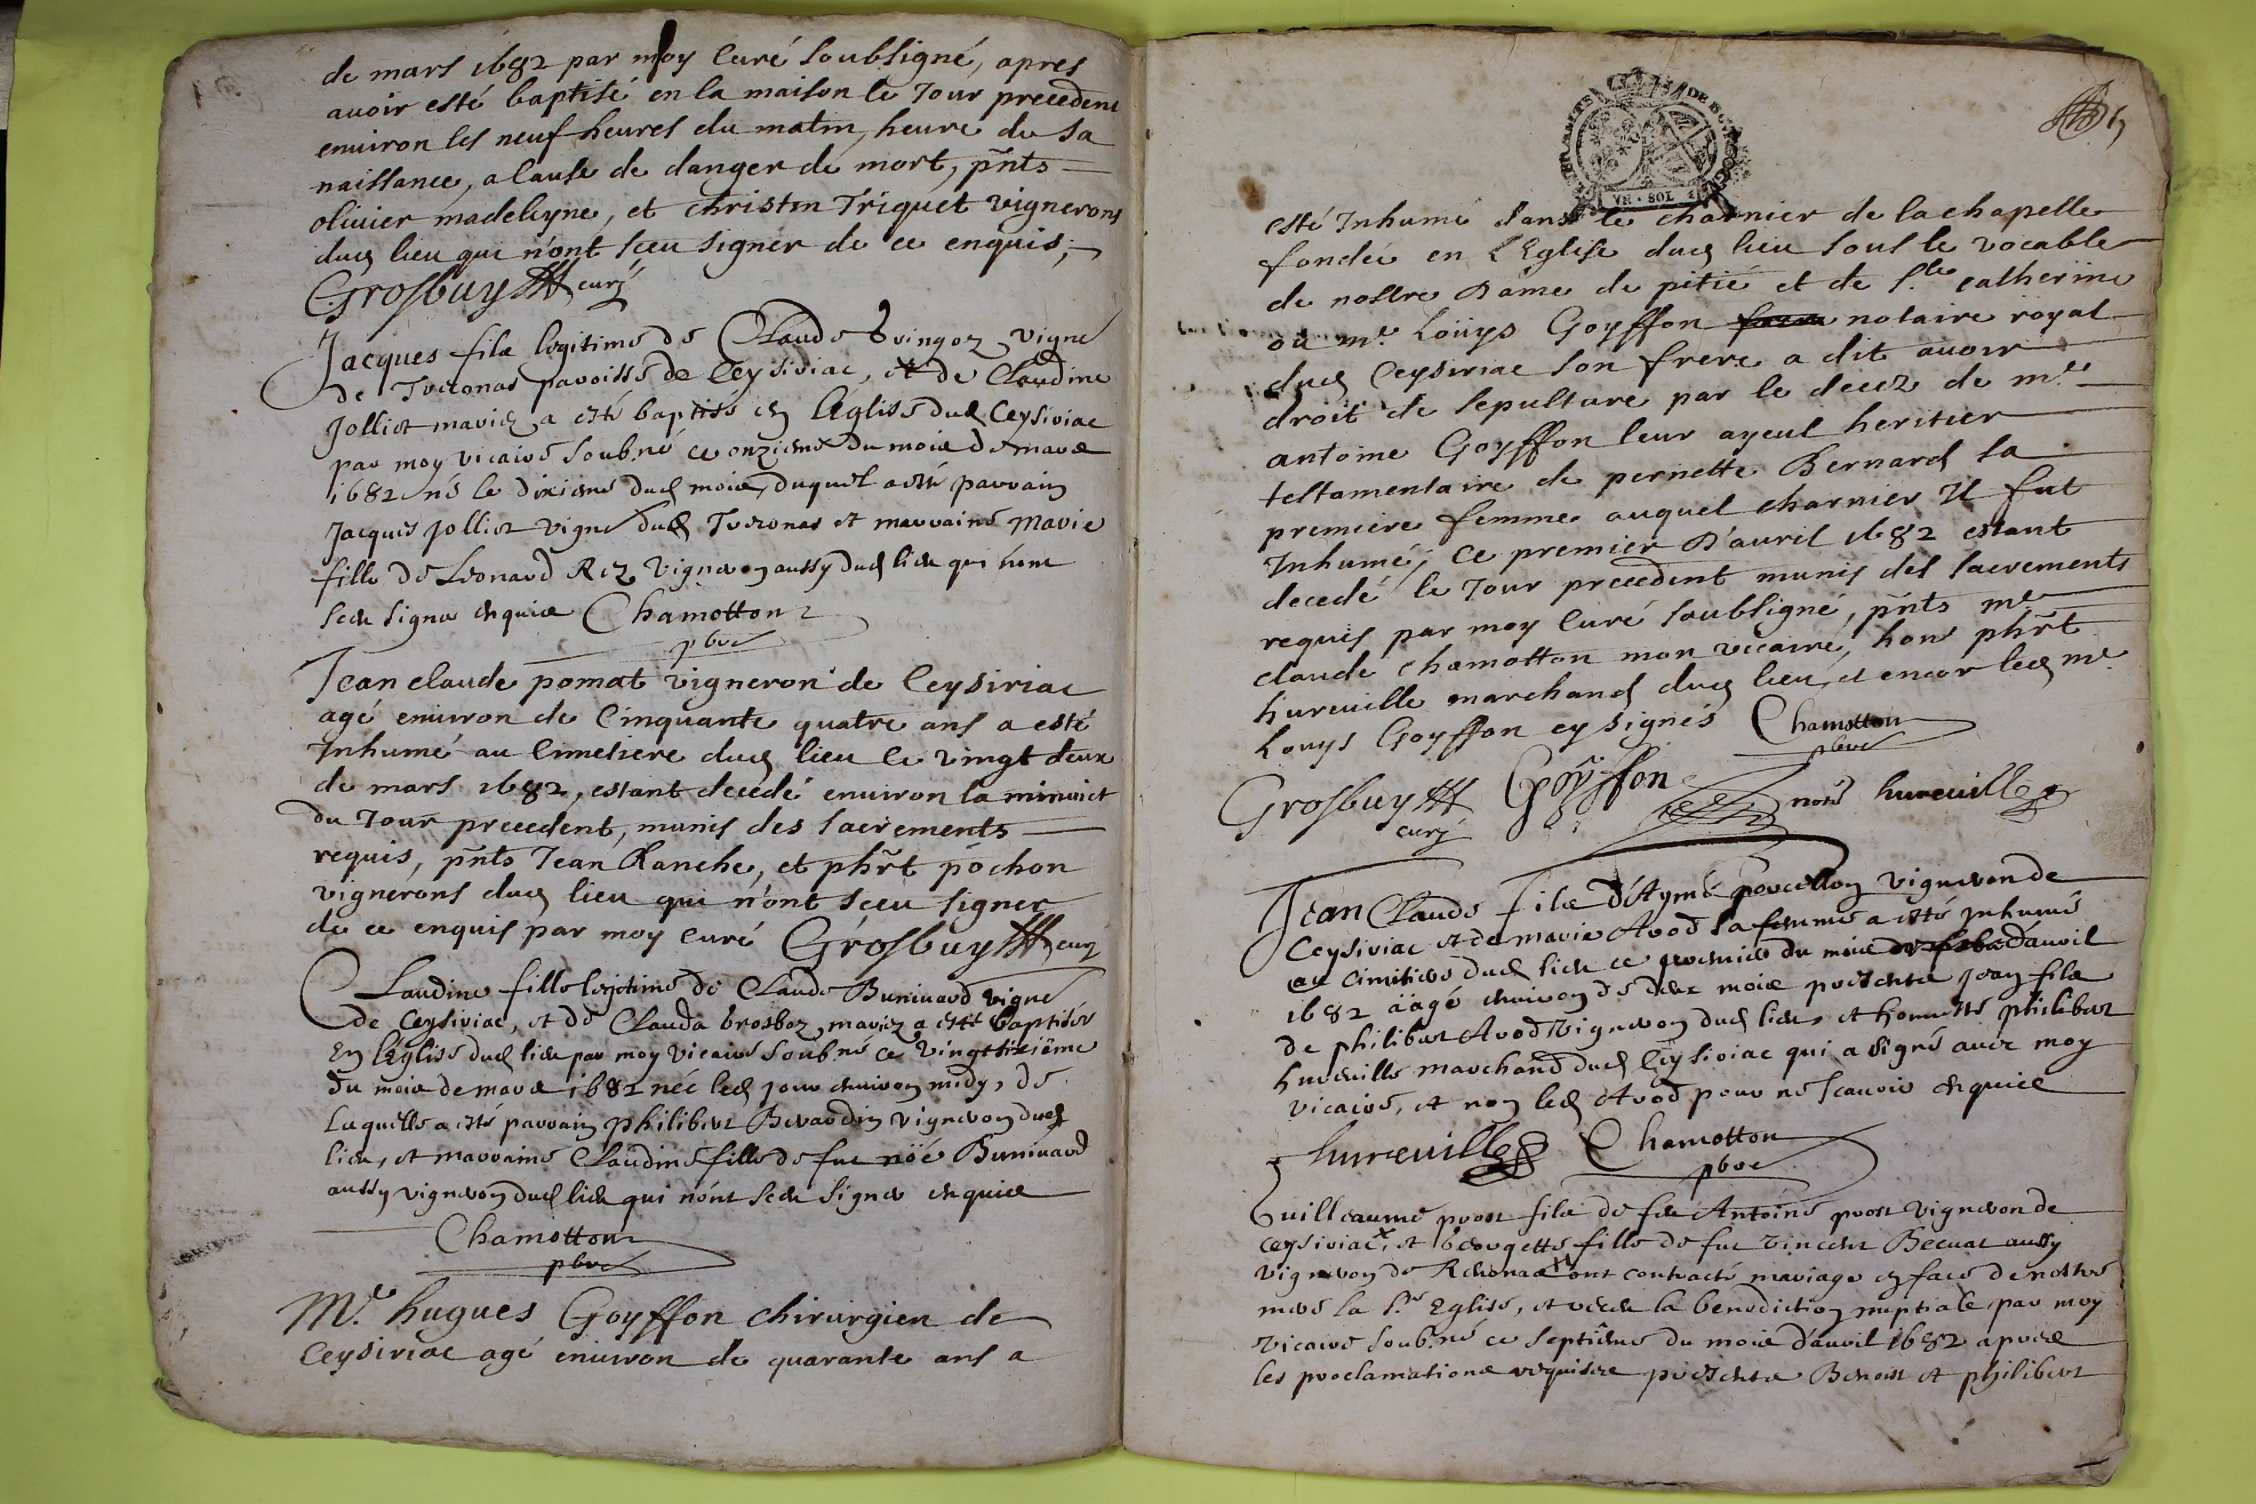 de mars 1682 par moy curé soubsigné, apres
avoir esté baptisé en la maison le Jour precedent
environ les neuf heures du matin, heure du sa
naissance, a cause de danger de mort, pñts
olivier madeleyne, et christin Triquet vignerons
dud lieu qui n'ont sceu signer de ce enquis;
Grosbuy curé
Jacques filz legitime de Claude vigne
de Tocconas parroisse de Ceysiriac, et de Claudine
Jolliet mariez a esté baptisé en l'eglise dud Ceysiriac
par moy vicaire soub.né ce onzieme du mois de mars
1682 né le dixieme dud mois, duquel a esté parrain
Jacques Jolliet vigne dud Tocconas et marraine marie
fille de Leonard Rez vigneron aussy dud lieu qui nont
sceu signer enquis Chamotton
pbre
Jean claude pomat vigneron de Ceysiriac
agé environ de Cinquante quatre ans a esté
Inhumé au Cimetiere dud lieu le vingt deux
de mars 1682, estant decedé environ la minuict
du Jour precedent, munis des sacrements
requis, pñts Jean Ranche, et phr̃t pochon
vignerons dud lieu qui n'ont sceu signer
de ce enquis par moy curé Grosbuy curé
Claudine fille legitime de Claude Buniuard vigne
de Ceysiriac, et de Clauda brosboz mariez a esté baptisée
En l'eglise dud lieu par moy vicaire soub.né ce vingtsixiéme
du mois de mars 1682 née led jour environ midy, de
Laquelle a esté parrain philibert Berardin vigneron dud
lieu, et marraine Claudine fille de fut noé Buniuard
aussy vigneron dud lieu qui n'ont sceu signer enquis
Chamotton
pbre
Mre. hugues Goyffon chirurgien de
Ceysiriac agé environ de quarante ans a
VN · SOL
esté Inhumé dans le charnier de la chapelle
fondée en L'Eglise dud lieu sous le vocable
de nostre Dame de pitié et de s.te catherine
ou me. Loüys Goyffon notaire royal
dud Ceysiriac son frere a dit avoir
droit de sepulture par le decez de me.
antoine Goyffon leur ayeul heritier
testamentaire de pernette Bernard sa
premiere femme auquel charnier Il fut
Inhumé, ce premier d'avril 1682 estant
decedé le Jour precedent munis des sacrements
requis par moy curé soubsigné, pñts me
claude Chamotton mon vicaire, hon phr̃t
hureuille marchand dud lieu, et encor led me.
Louys Goyffon cy signés Chamotton
pbre
Grosbuy Goÿffon nore hureuille
curé
Jean Claude filz d'Aymé porcellon vigneron de
Ceysiriac et de marie Avod sa femme a esté inhumé
au cimitiere dud lieu ce premier du mois d'avril
1682 aagé environ de deux mois presents Jean filz
de philibert Avod vigneron dud lieu, et honneste philibert
hureuille marchand dud Ceysiriac qui a signé avec moy
vicaire, et non led Avod pour ne scavoir enquis
hureuille Chamotton
pbre
Guilleaume prost filz de feu Antoine prost vigneron de
Ceysiriac, et Georgette fille de fut vincent Becuat aussy
vigneron de Revonas ont contracté mariage en face de nostre
mere la s.te Eglise, et receu la benediction nuptiale par moy
vicaire soub.né ce septiéme du mois d'avril 1682 apres
les proclamations requises presents Benoist et philibert